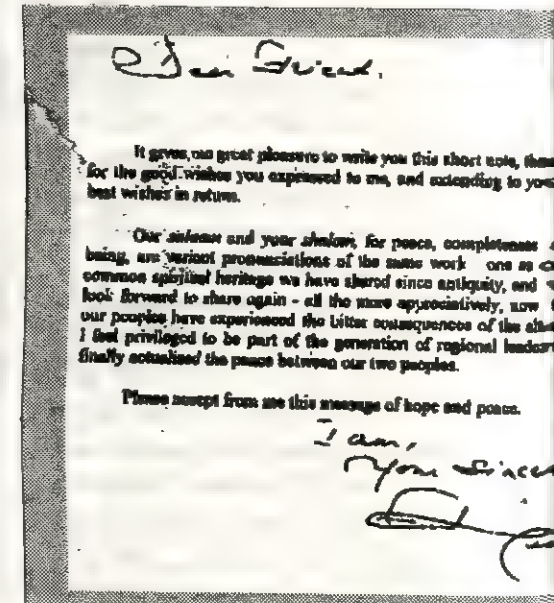 Dear Friend,
It gives me great pleasure to write you this short note,
for the good wishes you expressed to me, and extending to
best wishes in return.
Our salaam and your shalom, for peace, completeness
being, are variant pronunciations of the same work one as
common spiritual heritage we have shared since antiquity, and
look forward to share again - all the more appreciatively, now
our peoples have experienced the bitter consequences of the
I feel privileged to be part of the generation of regional
finally actualised the peace between our two peoples.
Please accept from me this message of hope and peace.
I am,
Your